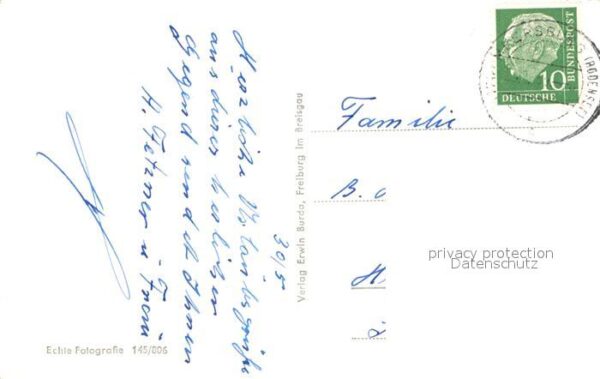 Herzliche Urlaubsgrüße
aus dieser herrlichen
Gegend sendet Ihnen
H. Fetzner u. Frau
30/5
Verlag Erwin Burda, Freiburg im Breisgau
Echte Fotografie 145/806
10
DEUTSCHE
BUNDESPOST
(BODENSEE)
Familie
B.
H
privacy protection
Datenschutz